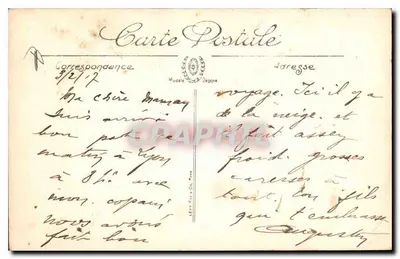 Carte Postale
Correspondance
Adresse
3/2/17
Ma chère Maman
suis arrivé à
bon port ce
matin à
à 8h avec
mon copain
nous avons
fait bon
voyage. Ici il y a
de la neige et
il fait assez
froid. grosses
caresses à
tout. ton fils
qui t'embrasse
Augustin